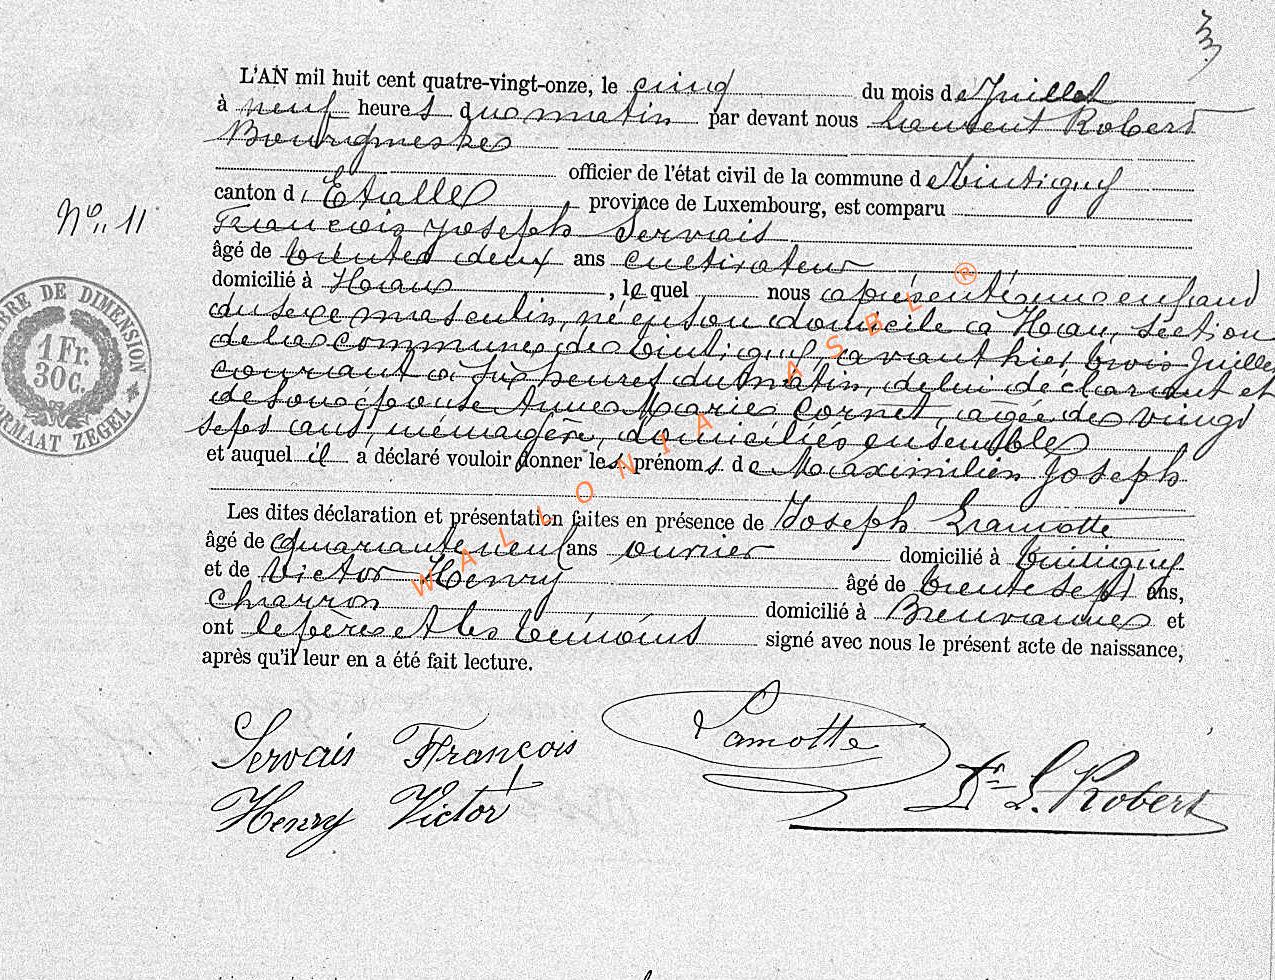 3
L'AN mil huit cent quatre-vingt-onze, le cinq du mois de Juillet
à neuf heures du matin par devant nous Laurent Robert
Bourgmestre
officier de l'état civil de la commune de Tintigny
N° 11
canton d'Etalle province de Luxembourg, est comparu
François Joseph Servais
âgé de trente deux ans cultivateur
domicilié à Han, lequel nous a présenté un enfant
du sexe masculin, né en son domicile à Han, section
de la commune de Tintigny avant hier, trois Juillet
courant à six heures du matin, de lui déclarant et
de son épouse Anne Marie Cornet, âgée de vingt
sept ans, ménagère, domiciliés ensemble
et auquel il a déclaré vouloir donner les prénoms de Maximilien Joseph
Les dites déclaration et présentation faites en présence de Joseph Lamotte
âgé de quarante neuf ans ouvrier domicilié à Tintigny
et de Victor Henry âgé de trente sept ans,
charron domicilié à Breuvanne et
ont le père et les témoins signé avec nous le présent acte de naissance,
après qu'il leur en a été fait lecture.
Servais François
Lamotte
Henry Victor
Dr L. Robert
TIMBRE DE DIMENSION
1 Fr.
30 C.
FORMAAT ZEGEL
WALLONIA ASBL ®